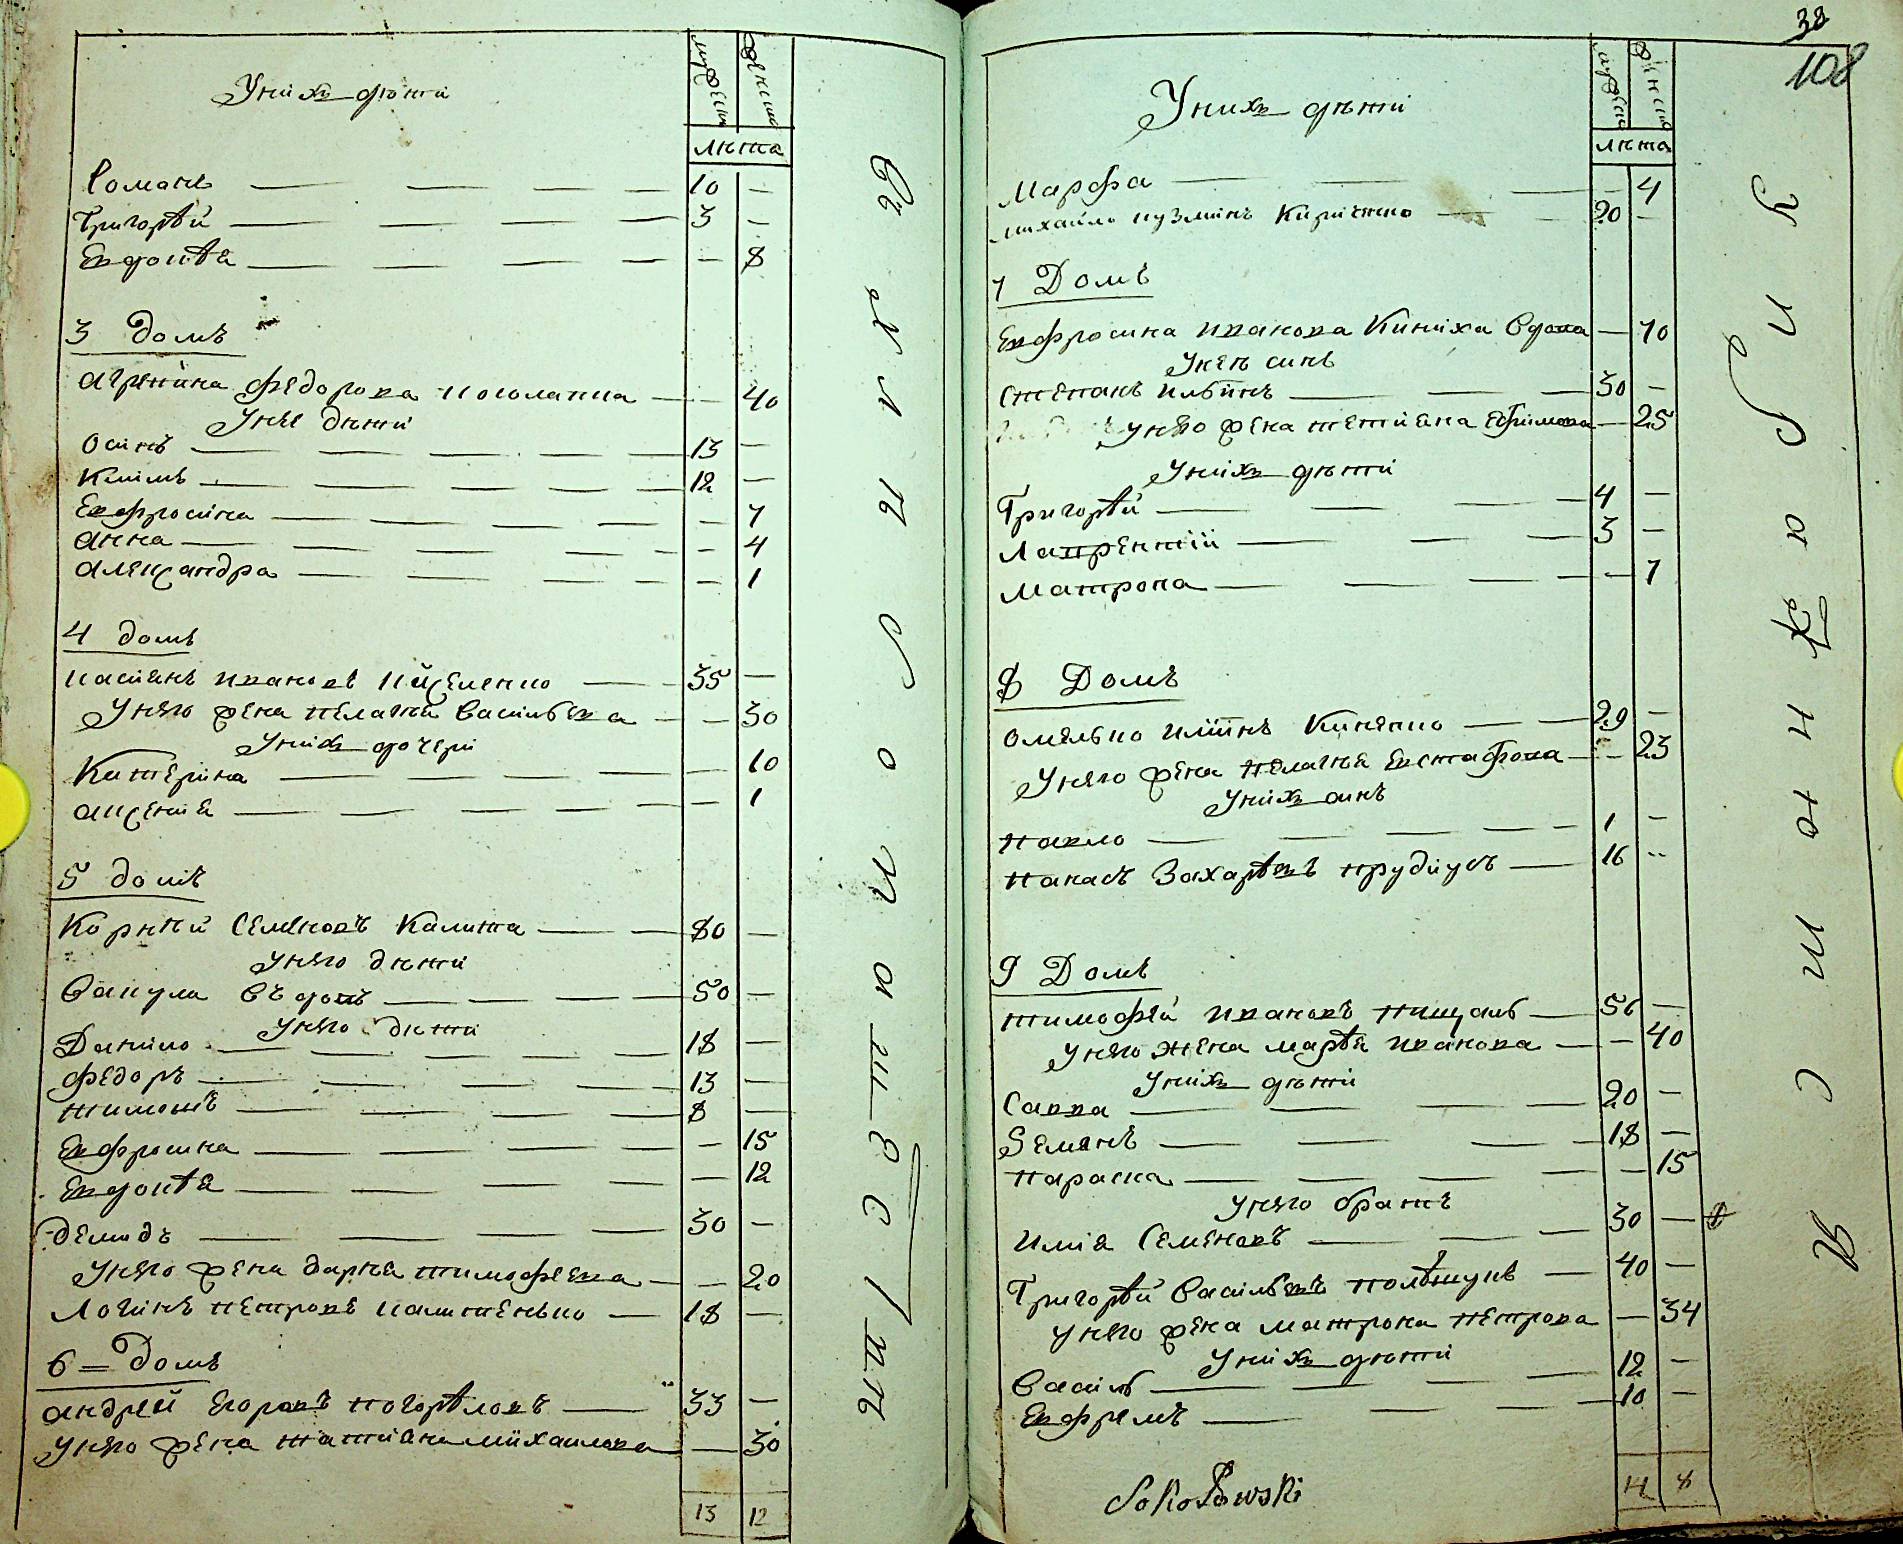 Унихъ дѣти
мужескъ женскъ
лѣта
Романъ 10 —
Григорѣй 3 —
Евдокѣя — 8
3 домъ
Агрепина Федорова — 40
Унее дѣти
Осипъ 13 —
Климъ 12 —
Евфросина — 7
Анна — 4
Александра — 1
4 домъ
Касиянъ Ивановъ 35 —
Унего жена Пелагия Василева — 30
Унихъ дочери
Катерина — 10
Аксения — 1
5 домъ
Корнѣй Семеновъ Калита 80 —
Унего дѣти
Вакула вдовъ 50 —
Унего дѣти
Данило 18 —
Федоръ 13 —
Тимошъ 8 —
Евфросина — 15
Евдокѣя — 12
Демидъ 30 —
Унего жена Дария Тимофеева — 20
Логинъ Петровъ Калитенько 18 —
6 = Домъ
Андрей Егоровъ Погорѣловъ 33 —
Унего жена Татияна Михаилова — 30
13 12
38
108
Унихъ дѣти
мужескъ женскъ
лѣта
Марфа — 4
Михайло Кузминъ Кириченко 20 —
7 Домъ
Евфросина Иванова Книиха вдова — 70
Унея синъ
Степанъ Илиинъ 30 —
Унего жена Тетияна Ефимова — 25
Унихъ дѣти
Григорѣй 4 —
Лаврентий 3 —
Матрона — 7
8 Домъ
Омелько Илиинъ 29 —
Унего жена Пелагия Евстафова — 23
Унихъ синъ
Павло 1 —
Панасъ Захарѣевъ 16 —
9 Домъ
Тимофѣй Ивановъ Пищаль 56 —
Унего жена Марѣя Иванова — 40
Унихъ дѣти
Савва 20 —
Семянъ 18 —
Параска — 15
Унего братъ
Илия Семеновъ 30 —
Григорѣй Василевъ 40 —
Унего жена Матрона Петрова — 34
Унихъ дѣти
Василь 12 —
Евфремъ 10 —
Sokołowski
14 8